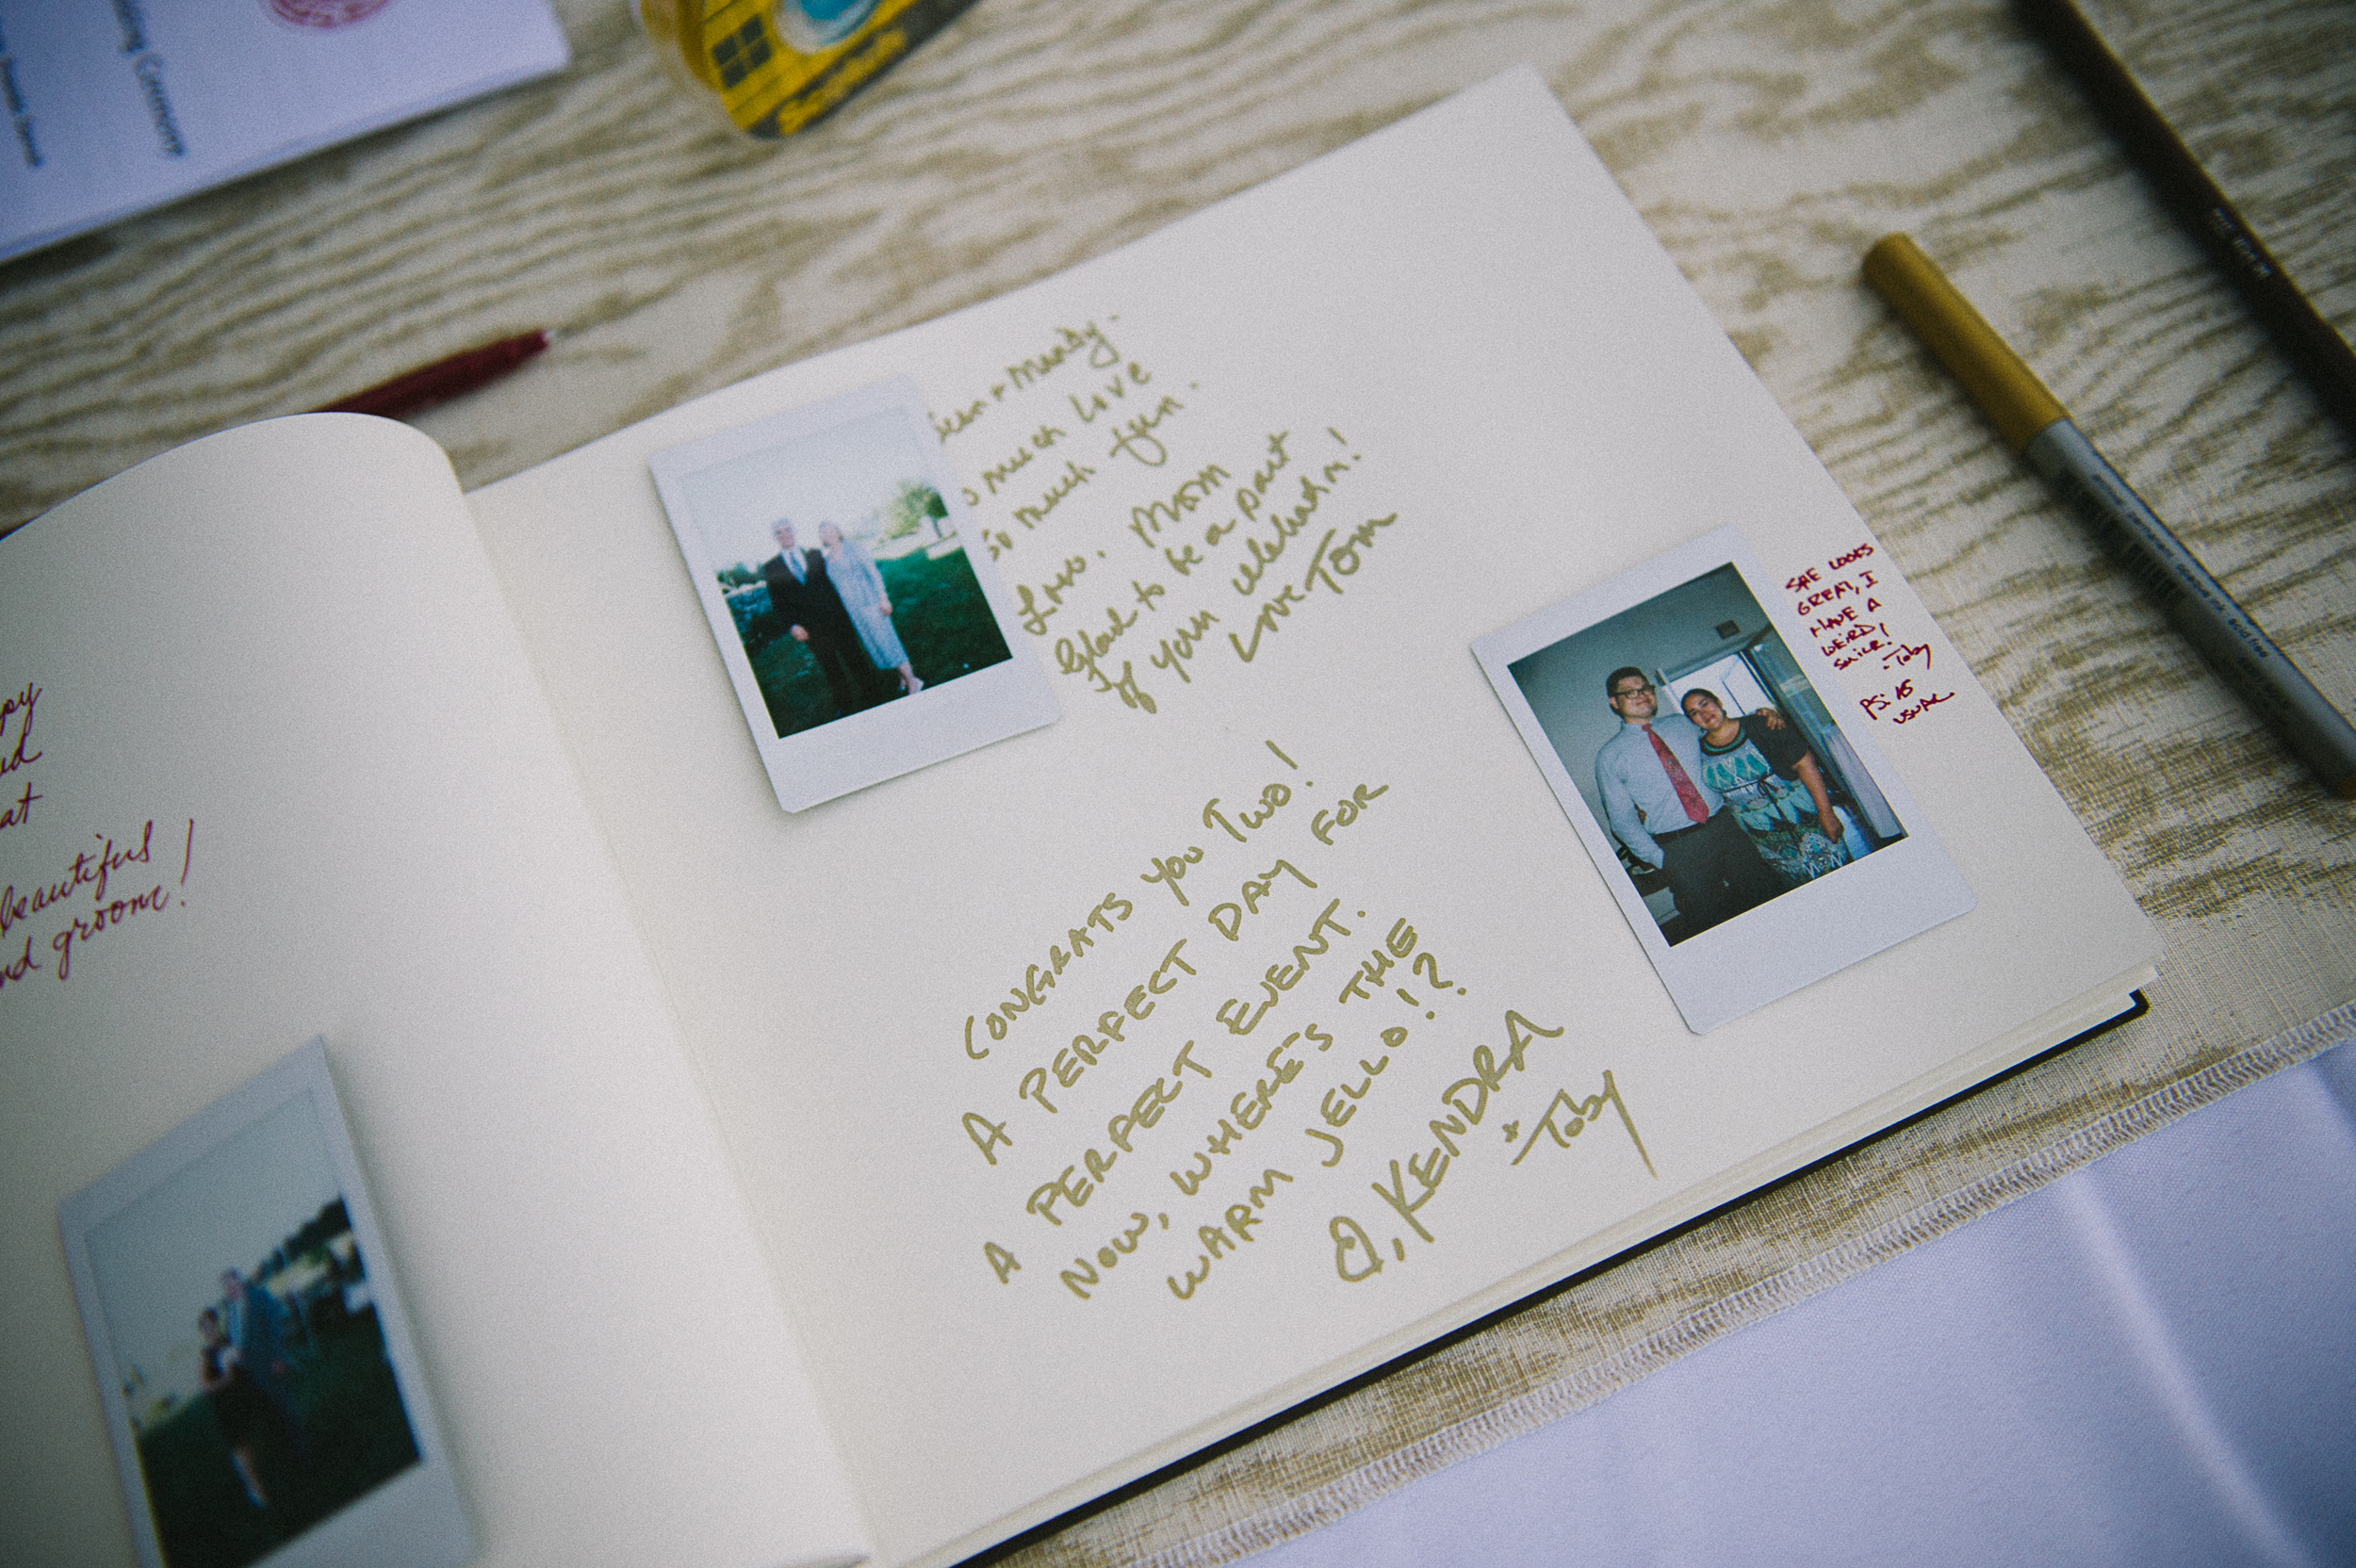 beautiful
groom!
+ Mandy-
much Love
So much fun.
Love, Mom
Glad to be a part
of your celebration!
Love Tom
SHE LOOKS
GREAT, I
HAVE A
WEIRD
SMILE!
-Toby
PS: AS
USUAL
CONGRATS YOU TWO!
A PERFECT DAY FOR
A PERFECT EVENT.
NOW, WHERE'S THE
WARM JELLO!?
KENDRA
+ Toby
Scotch